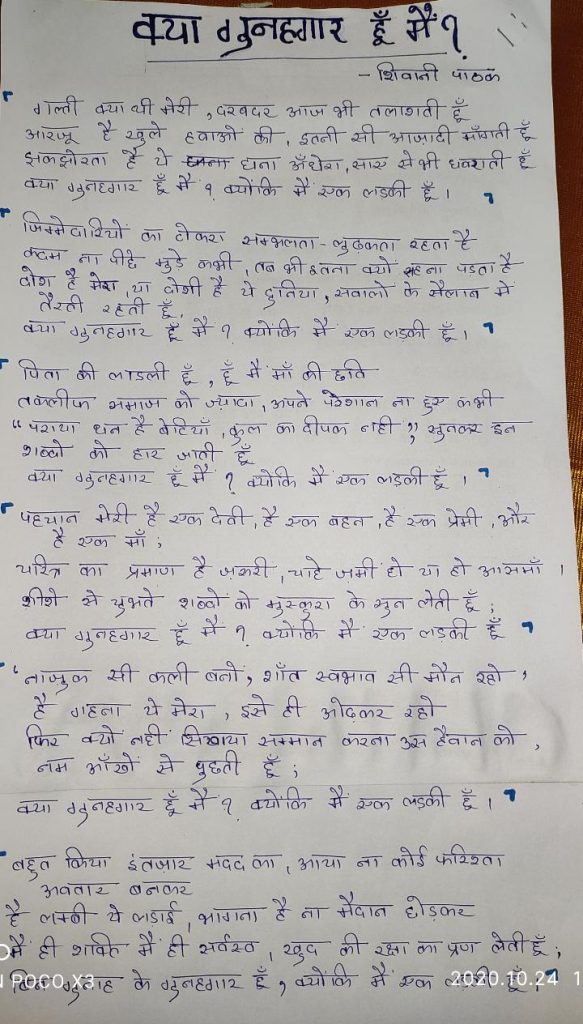 क्या गुनहगार हूँ मैं?
- शिवानी पाठक
गल्ती क्या थी मेरी, दरबदर आज भी तलाशती हूँ
आरजू है खुले हवाओं की, इतनी सी आजादी माँगती हूँ
झकझोरता है ये घना अँधेरा, साए से भी घबराती हूँ
क्या गुनहगार हूँ मैं? क्योंकि मैं एक लड़की हूँ।
जिम्मेदारियों का टोकरा सम्भलता - लुढ़कता रहता है
कदम ना पीछे मुड़े कभी, तब भी इतना क्यों सहना पड़ता है
दोश है मेरा, या दोशी है ये दुनिया, सवालों के सैलाब में
तैरती रहती हूँ,
क्या गुनहगार हूँ मैं? क्योंकि मैं एक लड़की हूँ।
पिता की लाडली हूँ, हूँ मैं माँ की छवि
तकलीफ समाज को ज्यादा, अपने परेशान ना हुए कभी
"पराया धन है बेटियाँ, कुल का दीपक नही" सुनकर इन
शब्दों को हार जाती हूँ
क्या गुनहगार हूँ मैं? क्योंकि मैं एक लड़की हूँ।
पहचान मेरी है एक देवी, है एक बहन, है एक प्रेमी, और
है एक माँ;
चरित्र का प्रमाण है ज़रूरी, चाहे जमीं हो या हो आसमाँ।
शीशे से चुभते शब्दों को मुस्कुरा के सुन लेती हूँ;
क्या गुनहगार हूँ मैं? क्योंकि मैं एक लड़की हूँ
'नाजुक सी कली बनो, शाँत स्वभाव सी मौन रहो'
है गहना ये मेरा, इसे ही ओढ़कर रहो
फिर क्यों नही सिखाया सम्मान करना उस हैवान को,
नम आँखों से पुछती हूँ;
क्या गुनहगार हूँ मैं? क्योंकि मैं एक लड़की हूँ।
बहुत किया इंतज़ार मदद का, आया ना कोई फरिश्ता
अवतार बनकर
है लम्बी ये लडाई, भागना है ना मैदान छोड़कर
मैं ही शक्ति मैं ही सर्वस्व, खुद की रक्षा का प्रण लेती हूँ;
गुनाह के गुनहगार हूँ, क्योंकि मैं एक लड़की हूँ।
POCO X3
2020.10.24